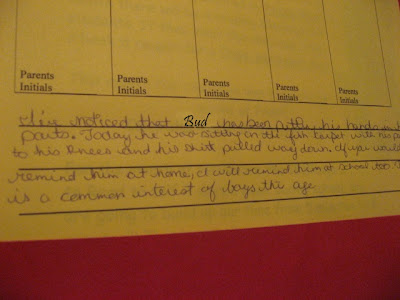 Parents Initials
Parents Initials
Parents Initials
Parents Initials
Parents Initials
noticed that Bud has been putting his hands
pants. Today he was sitting on the fish carpet with his
to his knees and his shirt pulled way down. If you would
remind him at home, I will remind him at school too.
is a common interest of boys this age